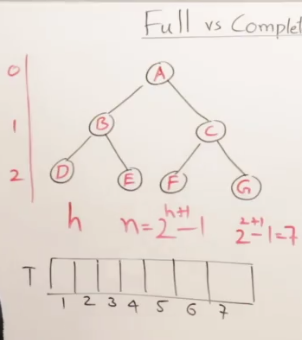 Full vs Complet
0
A
1
B C
2
D E F G
h n=2^{h+1}-1 2^{2+1}-1=7
T
1 2 3 4 5 6 7